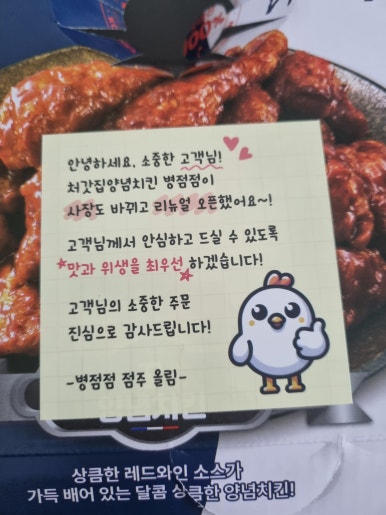 100%
안녕하세요, 소중한 고객님!
처갓집양념치킨 병점점이
사장도 바뀌고 리뉴얼 오픈했어요~!
고객님께서 안심하고 드실 수 있도록
맛과 위생을 최우선 하겠습니다!
고객님의 소중한 주문
진심으로 감사드립니다!
-병점점 점주 올림-
상큼한 레드와인 소스가
가득 배어 있는 달콤 상큼한 양념치킨!